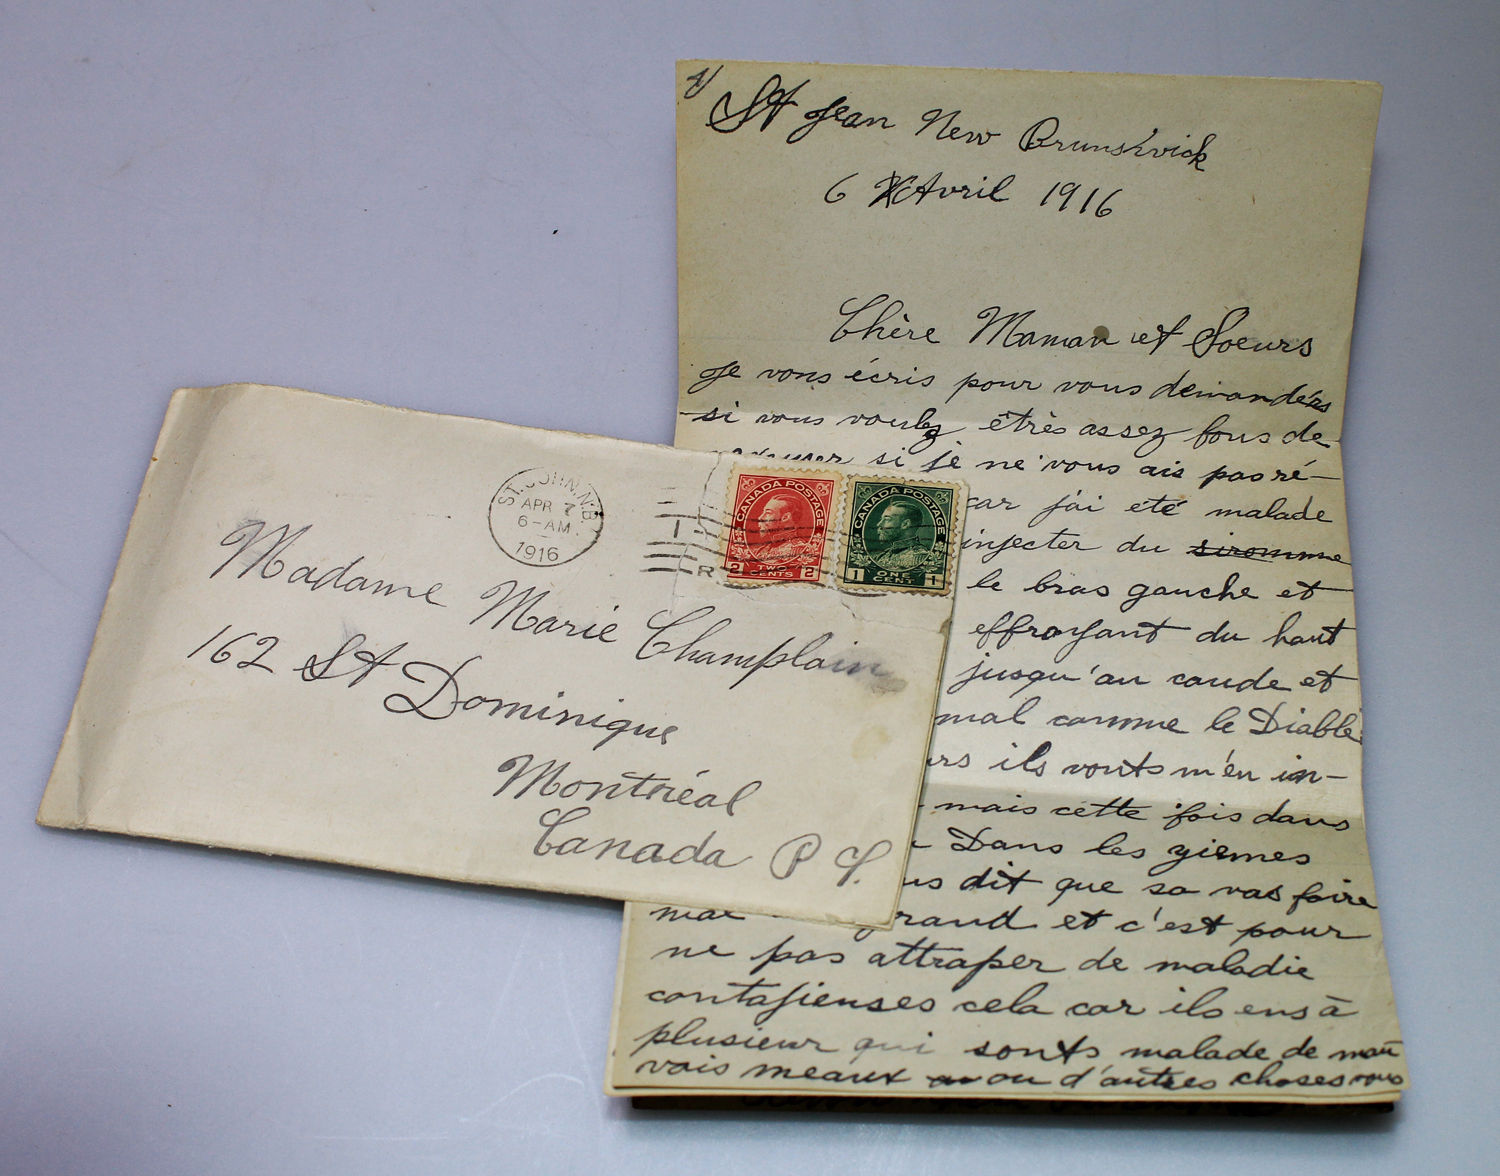 St Jean New Brunswick
6 Avril 1916
Chère Maman et Soeurs
Je vous écris pour vous demandérs
si vous voulez êtrès assez bous de
si je ne vous ais pas ré-
car j'ai eté malade
injecter du siromme
le bras gauche et
effrayant du haut
jusqu'au caude et
mal comme le Diable
ils vonts m'en in-
mais cette fois dans
Dans les yiemes
dit que sa vas faire
et c'est pour
ne pas attraper de maladie
contagieuses cela car ils ens à
plusieur qui sonts malade de mau
vais meaux ou d'autres choses vous
ST. JOHN, N.B.
APR 7
6-AM
1916
CANADA POSTAGE
2 TWO CENTS 2
CANADA POSTAGE
1 ONE CENT 1
Madame Marie Champlain
162 St Dominique
Montréal
Canada P Q.